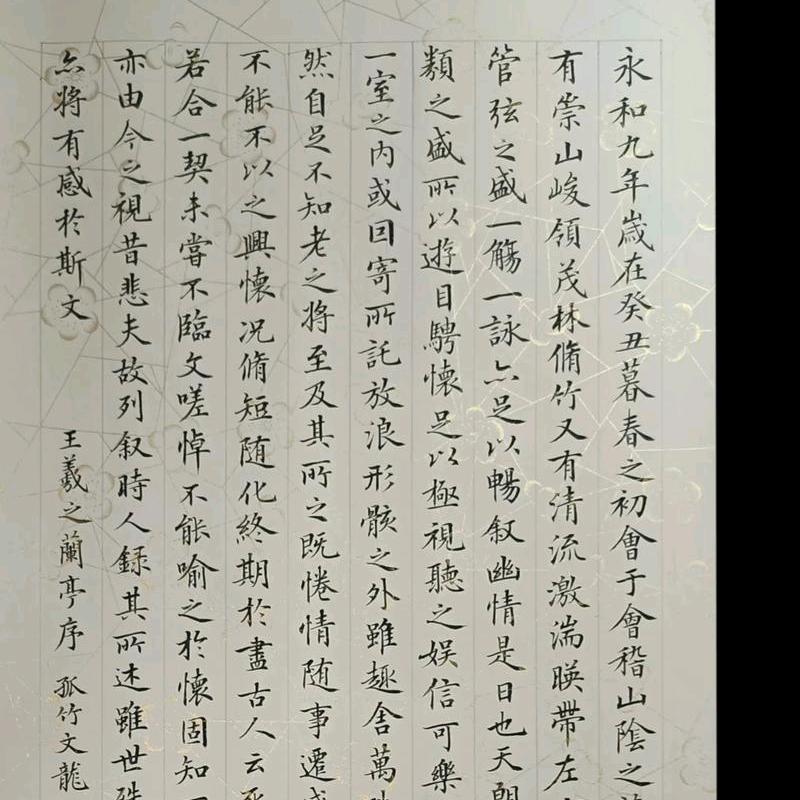 永和九年嵗在癸丑暮春之初會于會稽山陰之
有崇山峻領茂林脩竹又有清流激湍暎帶左
管弦之盛一觴一詠亦足以暢叙幽情是日也天朗
類之盛所以遊目騁懷足以極視聽之娱信可樂
一室之内或因寄所託放浪形骸之外雖趣舍萬
然自足不知老之將至及其所之既惓情随事遷
不能不以之興懷况脩短随化終期於盡古人云
若合一契未嘗不臨文嗟悼不能喻之於懷固知
亦由今之視昔悲夫故列叙時人録其所述雖世
亦將有感於斯文
王羲之蘭亭序 孤竹文龍